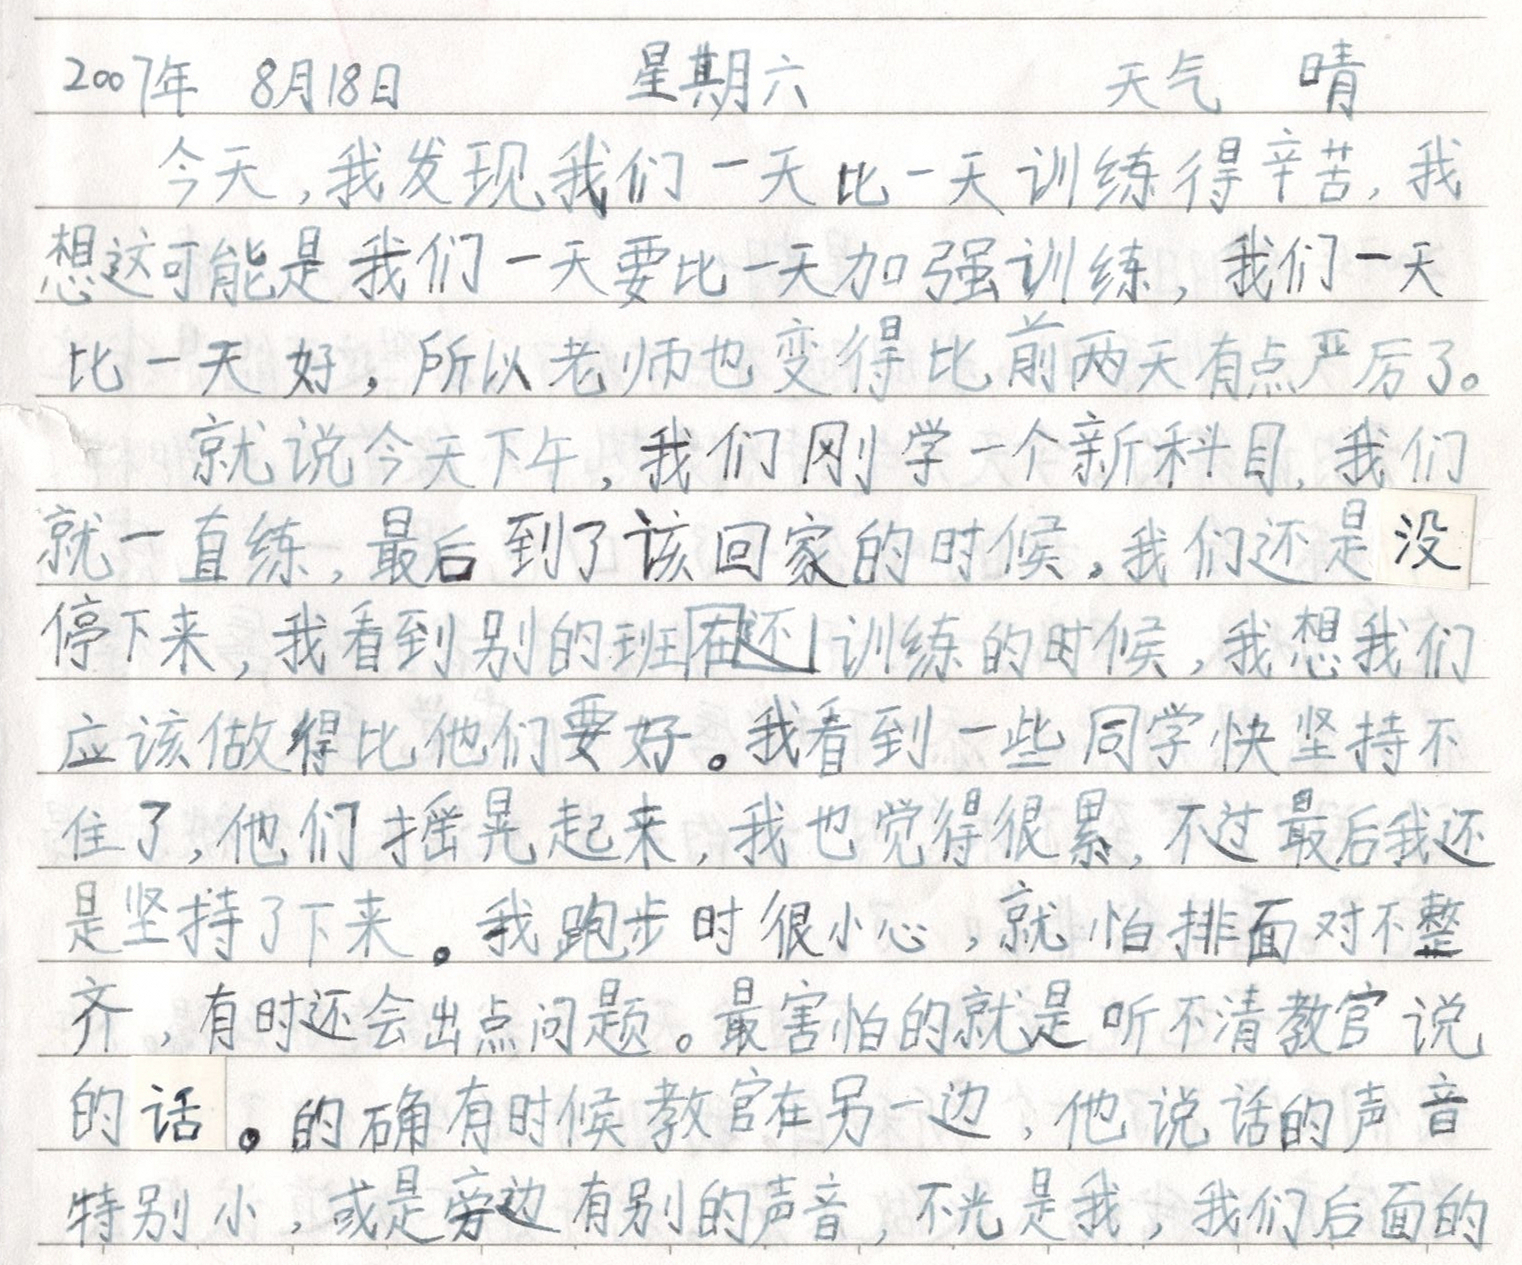 2007年 8月18日 星期六 天气 晴
今天,我发现我们一天比一天训练得辛苦,我
想这可能是我们一天要比一天加强训练,我们一天
比一天好,所以老师也变得比前两天有点严厉了。
就说今天下午,我们刚学一个新科目,我们
就一直练,最后到了该回家的时候,我们还是没
停下来,我看到别的班在还训练的时候,我想我们
应该做得比他们要好。我看到一些同学快坚持不
住了,他们摇晃起来,我也觉得很累,不过最后我还
是坚持了下来。我跑步时很小心,就怕排面对不整
齐,有时还会出点问题。最害怕的就是听不清教官说
的话。的确有时候教官在另一边,他说话的声音
特别小,或是旁边有别的声音,不光是我,我们后面的